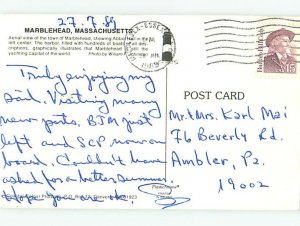 27.7.89
MARBLEHEAD, MASSACHUSETTS
Aerial view of the town of Marblehead, showing Abbot Hall in the
left center. The harbor, filled with hundreds of boats of all des-
criptions, graphically illustrates that Marblehead is the
yachting capital of the world.
Photo by
Truly enjoying my
sail. Visiting many
new ports. BJM just
left and SCP now on
board. Couldn't have
asked for a better summer.
Hope you are ok.
POST CARD
Mr. & Mrs. Karl Mai
76 Beverly Rd.
Ambler, Pa.
19002